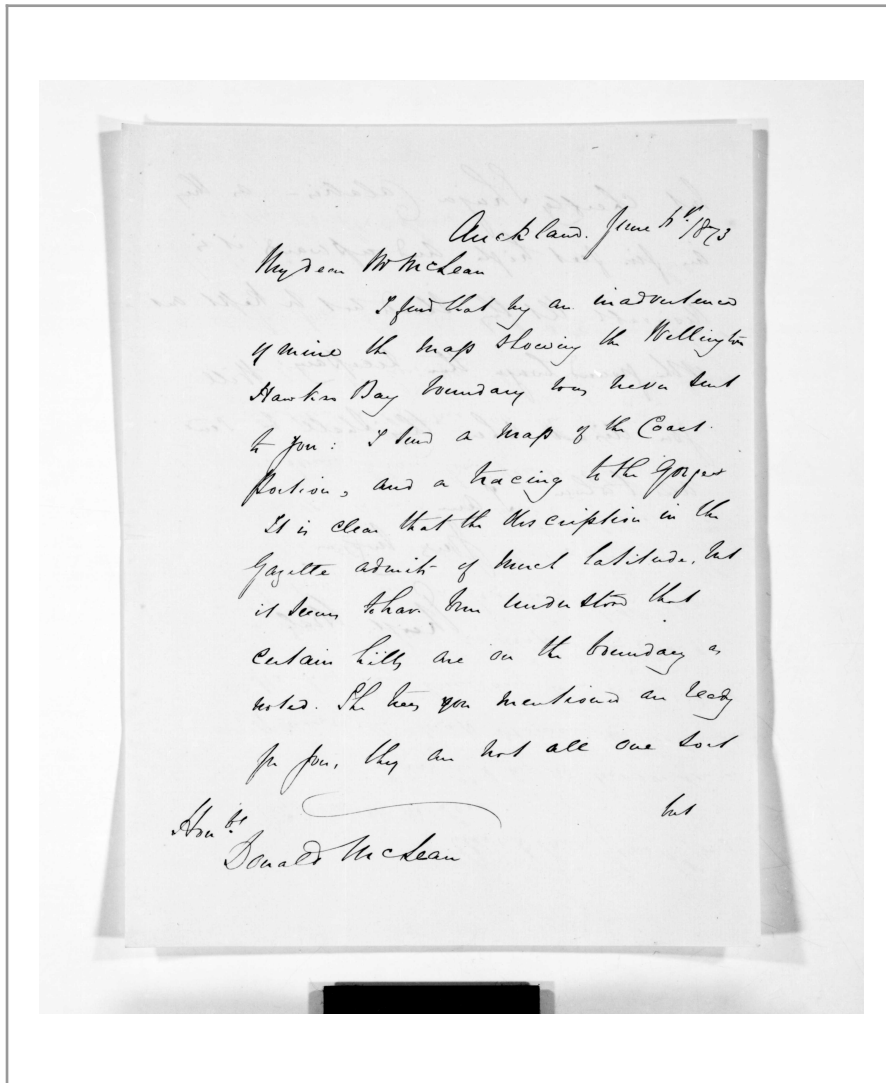 Auckland. June 1873
My dear Mr McLean
I find that by an inadvertence
of mine the map showing the Wellington
Hawkes Bay boundary was never sent
to you: I send a map of the Coast
Portion, and a tracing to the Gorge
It is clear that the description in the
Gazette admits of much latitude, but
it seems to have been understood that
certain hills are on the boundary as
noted. The trees you mentioned are ready
for you, they are not all one sort
but
Honble
Donald McLean